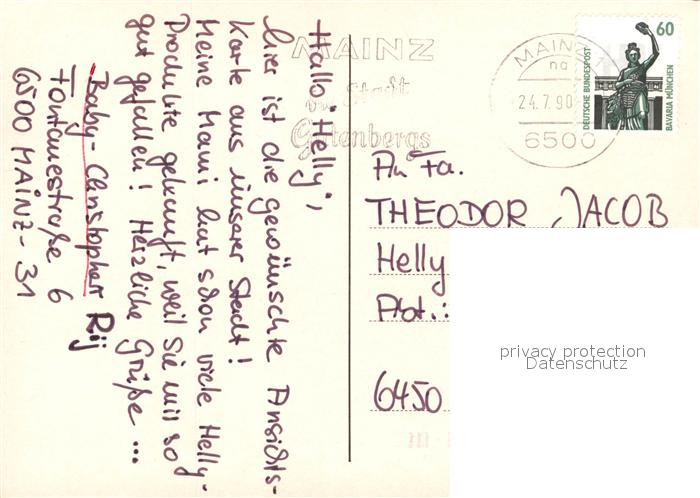 Hallo "Helly",
hier ist die gewünschte Ansichts-
karte aus unserer Stadt!
Meine Mami hat schon viele Helly-
Produkte gekauft, weil sie mir so
gut gefallen! Herzliche Grüße ...
Baby-Christopher Rij
Fontanestraße 6
6500 MAINZ-31
MAINZ
Stadt
Gutenbergs
MAINZ
na
24.7.90
6500
60
DEUTSCHE BUNDESPOST
BAVARIA MÜNCHEN
An Fa.
THEODOR JACOB
Helly
Abt.:
6450
privacy protection
Datenschutz